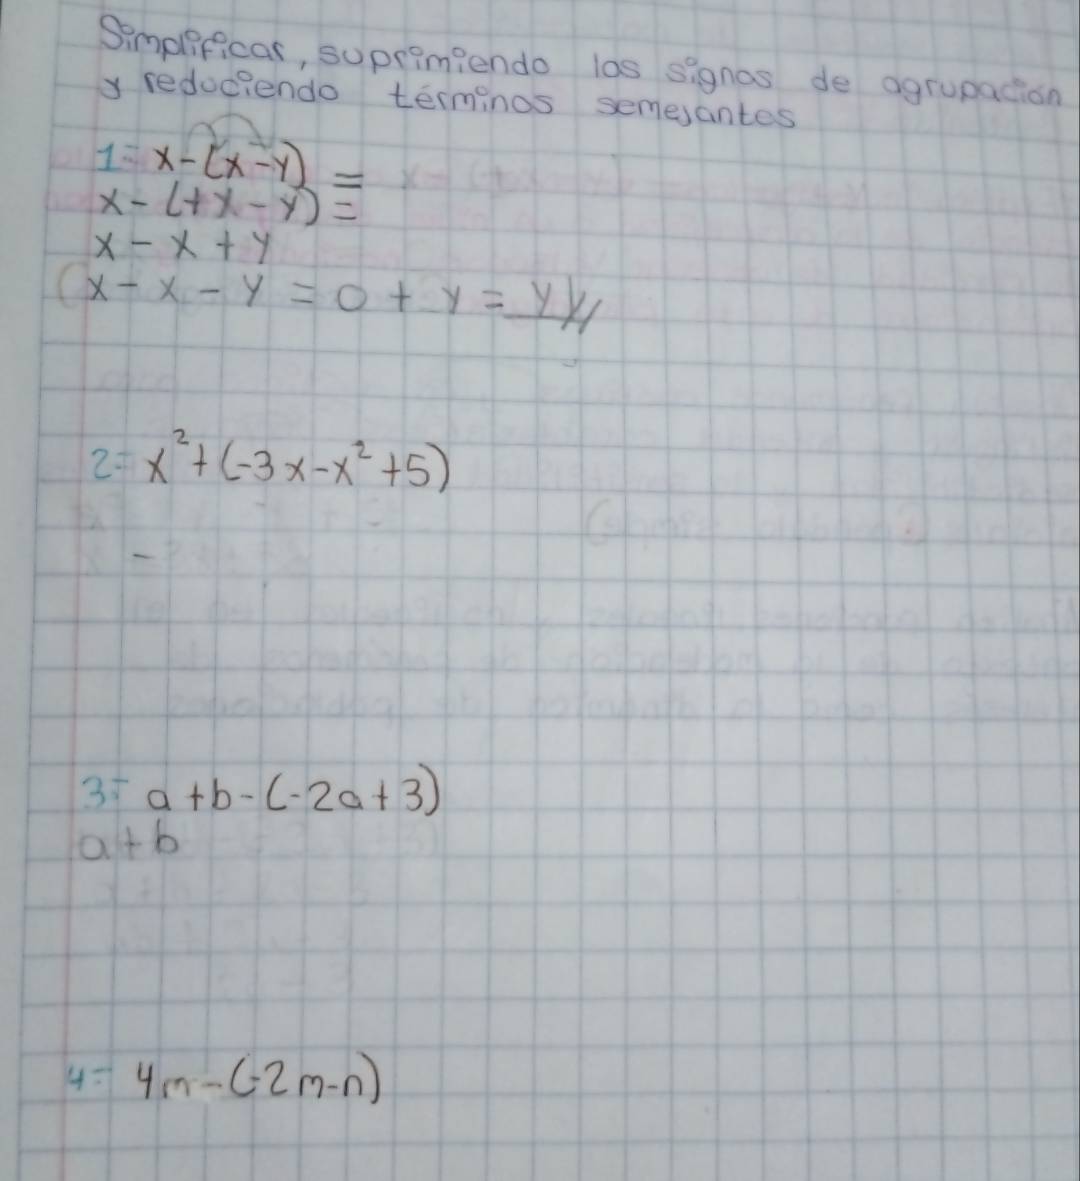 Simplificar, suprimiendo los signos de agrupación
y reduciendo términos semejantes
1= x-(x-y) =
x-(+x-y) =
x-x+y
x-x-y = 0 + y = y y//
2= x²+(-3x-x²+5)
-
3= a+b-(-2a+3)
a+b
4= 4m-(-2m-n)